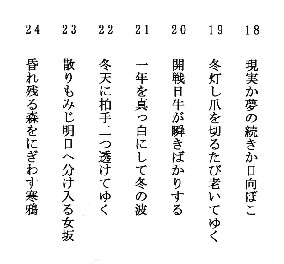 18 現実か夢の続きか日向ぼこ
19 冬灯し爪を切るたび老いてゆく
20 開戦日牛が瞬きばかりする
21 一年を真っ白にして冬の波
22 冬天に拍手二つ透けてゆく
23 散りもみじ明日へ分け入る女坂
24 昏れ残る森をにぎわす寒鴉